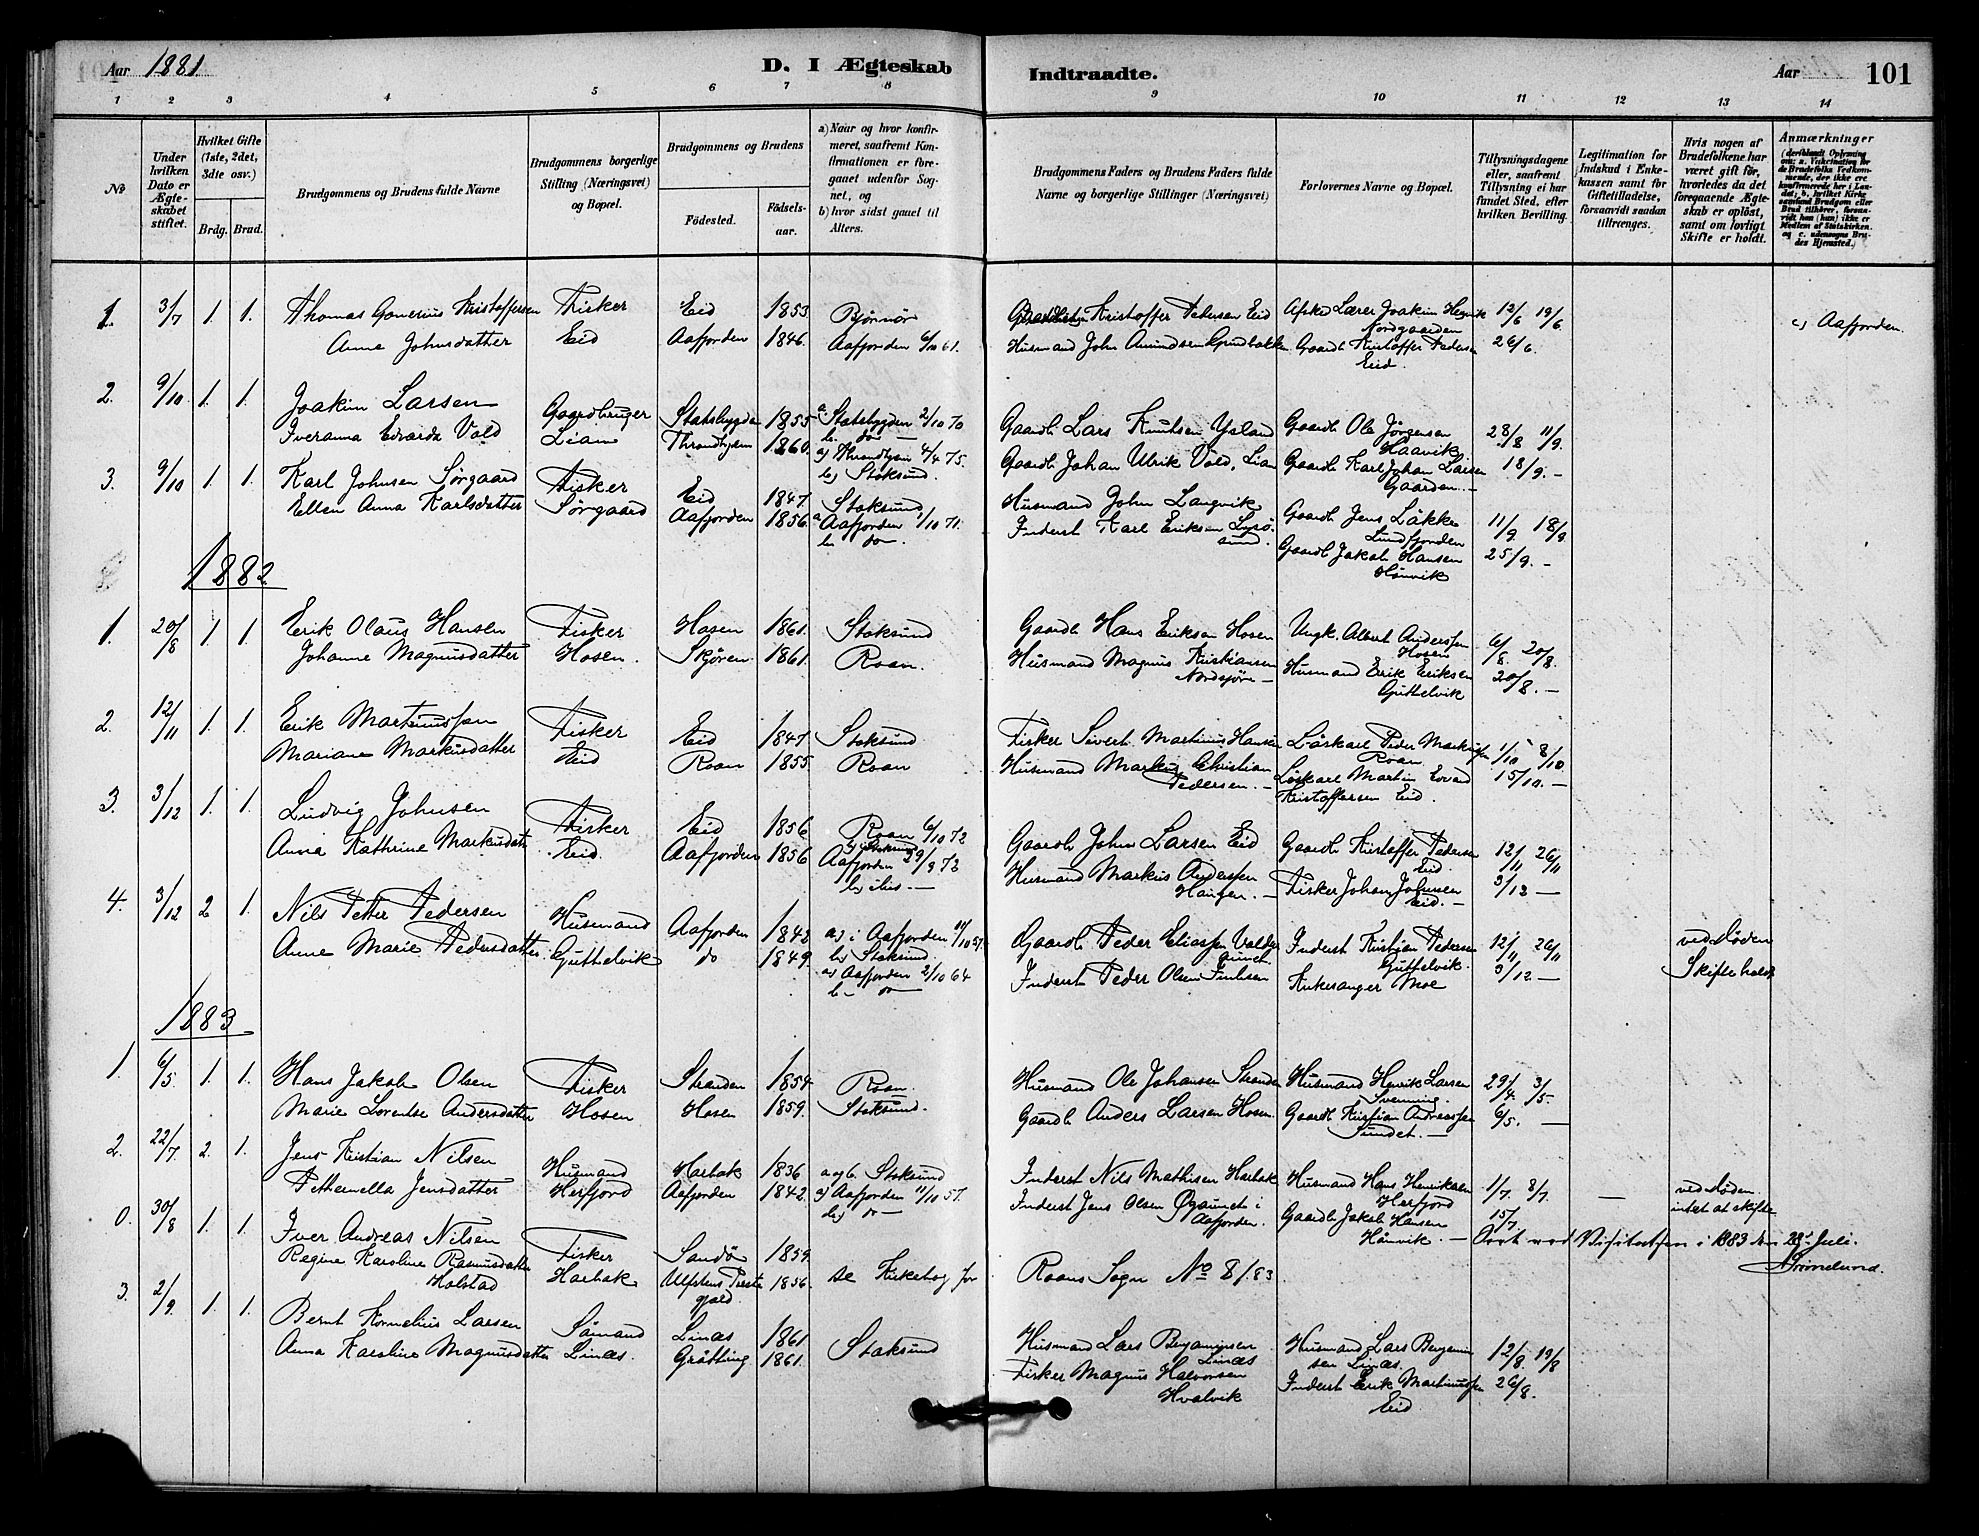 Aar 1881.
D. I Ægteskab
Indtraadte.
Aar
101
1 2 3 4 5 6 7 8 9 10 11 12 13 14
No
Under hvilken Dato er Ægteskabet stiftet.
Hvilket Gifte (1ste, 2det, 3dte osv.)
Brdg. Brud.
Brudgommens og Brudens fulde Navne
Brudgommens borgerlige Stilling (Næringsvei) og Bopæl.
Brudgommens og Brudens
Fødested.
Fødselsaar.
a) Naar og hvor konfirmeret, saafremt Konfirmationen er foregaaet udenfor Sognet, og
b) hvor sidst gaaet til Alters.
Brudgommens Faders og Brudens Faders fulde Navne og borgerlige Stillinger (Næringsvei)
Forlovernes Navne og Bopæl.
Tillysningsdagene eller, saafremt Tillysning ei har fundet Sted, efter hvilken Bevilling.
Legitimation for Indskud i Enkekassen samt for Giftetilladelse, forsaavidt saadan tiltrænges.
Hvis nogen af Brudefolkene har været gift før, hvorledes da det foregaaende Ægteskab er opløst, samt om lovligt Skifte er holdt.
Anmærkninger
1. 3/7 1. 1. Thomas Gomerius Kristoffersen Fisker Eid 1853 Bjørnør Kristoffer Pedersen Eid Lærer Joakim Henrik Nordgaarden 12/6 19/6 c) Aafjorden.
Anna Johnsdatter Eid Aafjorden 1846. Aafjorden 6/10 61. Husmand John Amundsen Gaardb Kristoffer Pedersen Eid. 26/6.
2. 9/10 1. 1. Joakim Larsen Gaardbruger Statsbygden 1855 a. Statsbygden 2/10 70 b. do — Gaardb Lars Knutsen Gaardb Ole Jørgensen Haavik. 28/8 11/9.
Iveranna Edvarda Vold Lian Throndhjem 1860. a) Throndhjem 4/4 75. b) Stoksund. Gaardb Johan Ulrik Vold, Lian Gaardb Karl Johan Larsen Gaarden. — 18/9. —
3. 9/10 1. 1. Karl Johnsen Sørgaard Fisker Eid 1847. Stoksund Husmand John Langvik Gaardb Jens Løkke Sundfjorden 11/9 18/9
Ellen Anna Karlsdatter Sørgaard Aafjorden 1856. a Aafjorden 1/10 71. b. do. Inderst Karl Eriksen Lysøsund. Gaardb Jakob Hansen Hønvik 25/9. —
1882
1. 20/8 1. 1. Erik Olaus Hansen Fisker Hosen 1861. Stoksund Gaardb Hans Eriksen Hosen Ungk. Albert Anderssen Hosen 6/8 20/8.
Johanne Magnusdatter Hosen. Skjøren 1861. Roan. Husmand Magnus Kristiansen Husmand Erik Eriksen Guttelvik 20/8. —
2. 12/11 1. 1. Erik Martinussen Fisker Eid 1847. Stoksund Fisker Sivert Martinus Hansen Løskarl Peder Markussen Roan 1/10 8/10
Mariane Markusdatter Eid Roan 1855 Roan Husmand Markus Christian Pedersen. — Løskarl Martin Kristoffersen Eid. 15/10. —
3. 3/12 1. 1. Ludvig Johnsen Fisker Eid 1856 Roan 6/10 72 Gaardb John Larsen Eid Gaardb Kristoffer Pedersen Eid. 12/11 26/11
Anna Kathrine Markusdatt Eid. Aafjorden 1856 Aafjorden 29/9 72 Husmand Markus Anderssen Haugen. — Fisker Johan Johnsen Eid. — 3/12 —
4. 3/12 2. 1. Nils Petter Pedersen Husmand Aafjorden 1842 a) i Aafjorden b) Stoksund Gaardb Peder Eliassen Inderst Kristian Pedersen Guttelvik. 12/11 26/11 ved Døden
Anne Marie Pedersdatter. Guttelvik do 1849. a) Aafjorden 2/10 64 b — do — Inderst Peder Olsen Kirkesanger Moe 3/12 — Skifte holdt
1883.
1. 6/5. 1. 1. Hans Jakob Olsen Fisker Stranden 1854 Roan. Husmand Ole Johansen Stranden Husmand Henrik Larsen Svenning. 29/4 3/5.
Marie Lorentse Andersdatter Hosen Hosen 1859. Stoksund. Gaardb Anders Larsen Hosen. Gaardb Kristian Andreassen Sundet. — 6/5. —
2. 22/7. 2. 1. Jens Kristian Nilsen Husmand Harbak 1836 a og b. Stoksund Inderst Nils Mathisen Harbak Husmand Hans Henriksen Herfjord 1/7. 8/7. — ved Døden.
Pethernella Jensdatter Herfjord Aafjorden 1842. a) Aafjorden 11/10 57. b) do — Inderst Jens Olsen i Aafjorden. Gaardb Jakob Hansen Hønvik. — 15/7 intet at skifte
ved Visitatsen i 1883 den 28de Juli.
0. 30/8 1. 1. Iver Andreas Nilsen Fisker Sandø 1859. se Kirkebog for Roans Sogn No 8/83
Regine Karoline Rasmusdatter Holstad Harbak Ulfstens Præstegjæld. 1856.
3. 2/9. 1. 1. Bernt Kornelius Larsen Sømand Linæs 1861 Stoksund Husmand Lars Benjaminsen Linæs Husmand Lars Benjaminsen Linæs. 12/8. 19/8
Anna Karoline Magnusdatter Linæs. Grøtting 1861. Fisker Magnus Halvorsen Hvalvik Inderst Erik Martinussen Eid 26/8.